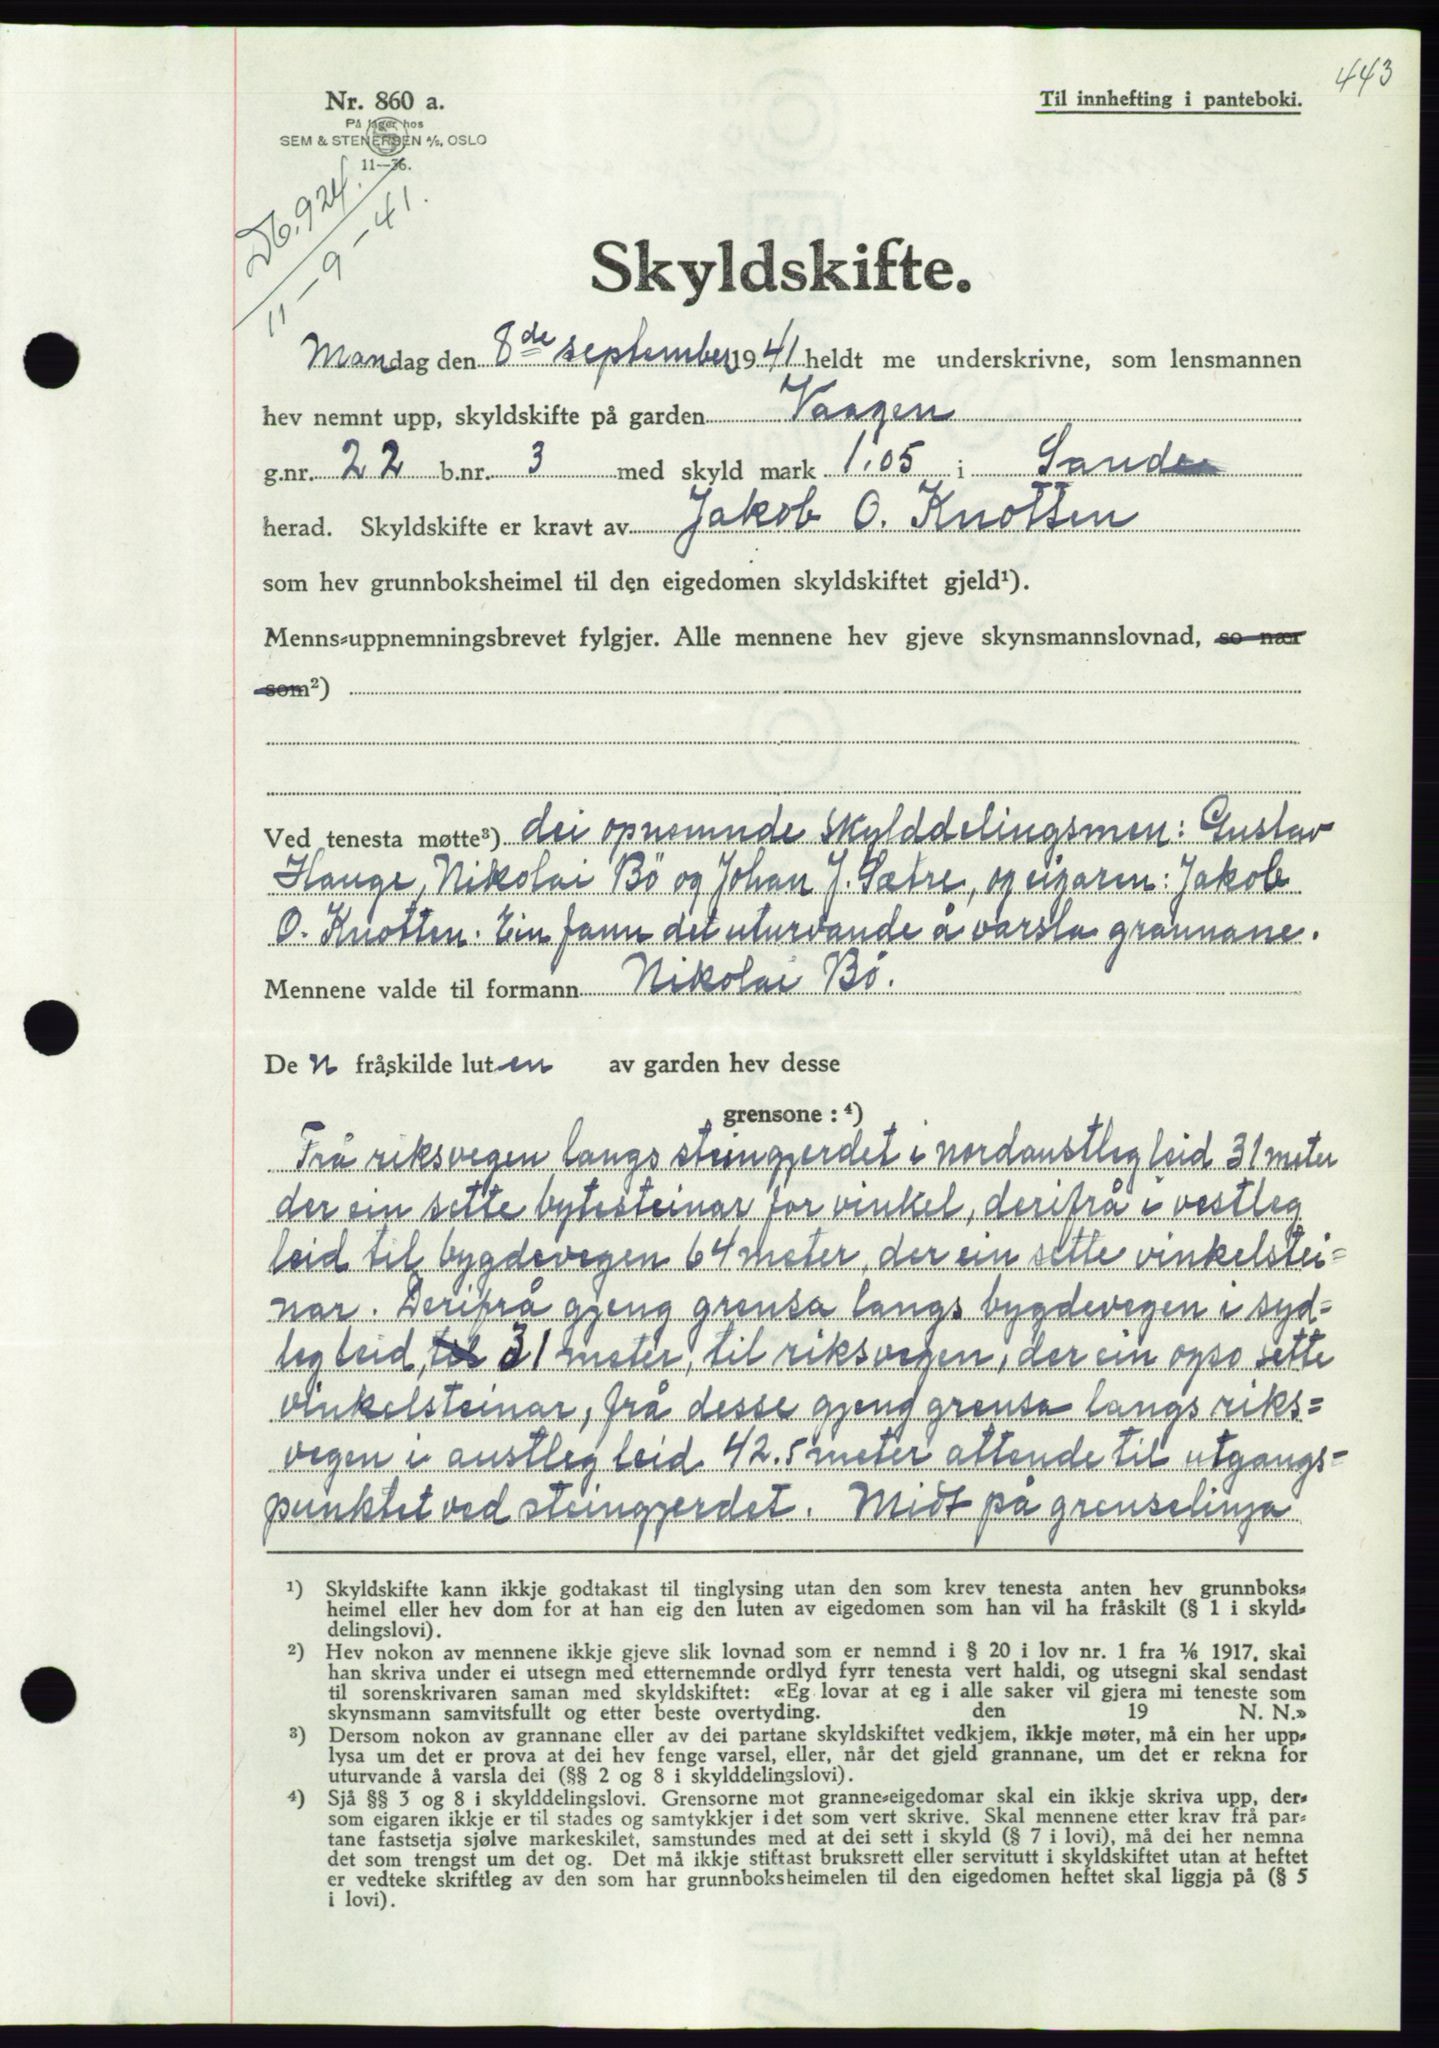 443
Nr. 860 a.
På lager hos
SEM & STENERSEN A/S, OSLO
11—36.
Til innhefting i panteboki.
Db. 924.
11 - 9 - 41.
Skyldskifte.
Mandag den 8de september 1941 heldt me underskrivne, som lensmannen
hev nemnt upp, skyldskifte på garden Vaagen
g.nr. 22 b.nr. 3 med skyld mark 1.05 i Sande
herad. Skyldskifte er kravt av Jakob O. Knotten
som hev grunnboksheimel til den eigedomen skyldskiftet gjeld¹).
Menns-uppnemningsbrevet fylgjer. Alle mennene hev gjeve skynsmannslovnad, so nær
som²)
Ved tenesta møtte³) dei opnemnde skylddelingsmen: Gustav
Hauge, Nikolai Bö og Johan J. Sætre, og eigaren: Jakob
O. Knotten. Ein fann det uturvande å varsla grannane.
Mennene valde til formann Nikolai Bö.
De n fråskilde lut en av garden hev desse
grensone: ⁴)
Frå riksvegen langs steingjerdet i nordaustleg leid 31 meter
der ein sette bytesteinar for vinkel, derifrå i vestleg
leid til bygdevegen 64 meter, der ein sette vinkelstei=
nar. Derifrå gjeng grensa langs bygdevegen i syd=
leg leid, til 31 meter, til riksvegen, der ein ogso sette
vinkelsteinar, frå desse gjeng grensa langs riks=
vegen i austleg leid 42.5 meter attende til utgangs=
punktet ved steingjerdet. Midt på grenselinja
¹) Skyldskifte kann ikkje godtakast til tinglysing utan den som krev tenesta anten hev grunnboks-
heimel eller hev dom for at han eig den luten av eigedomen som han vil ha fråskilt (§ 1 i skyld-
delingslovi).
²) Hev nokon av mennene ikkje gjeve slik lovnad som er nemnd i § 20 i lov nr. 1 fra 1/6 1917, skal
han skriva under ei utsegn med etternemnde ordlyd fyrr tenesta vert haldi, og utsegni skal sendast
til sorenskrivaren saman med skyldskiftet: «Eg lovar at eg i alle saker vil gjera mi teneste som
skynsmann samvitsfullt og etter beste overtyding. den 19 N. N.»
³) Dersom nokon av grannane eller av dei partane skyldskiftet vedkjem, ikkje møter, må ein her upp-
lysa um det er prova at dei hev fenge varsel, eller, når det gjeld grannane, um det er rekna for
uturvande å varsla dei (§§ 2 og 8 i skylddelingslovi).
⁴) Sjå §§ 3 og 8 i skylddelingslovi. Grensorne mot granne-eigedomar skal ein ikkje skriva upp, der-
som eigaren ikkje er til stades og samtykkjer i det som vert skrive. Skal mennene etter krav frå par-
tane fastsetja sjølve markeskilet, samstundes med at dei sett i skyld (§ 7 i lovi), må dei her nemna
det som trengst um det og. Det må ikkje stiftast bruksrett eller servitutt i skyldskiftet utan at heftet
er vedteke skriftleg av den som har grunnboksheimelen til den eigedomen heftet skal liggja på (§ 5
i lovi).